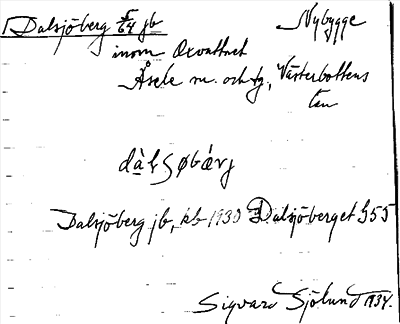 Dalsjöberg 5/64 jb Nybygge
inom Oxvattnet
Åsele sn. och tg, Västerbottens
län
Dalsjöberg jb, kb 1930 Dalsjöberget G55
Sigvard Sjölund 1934.